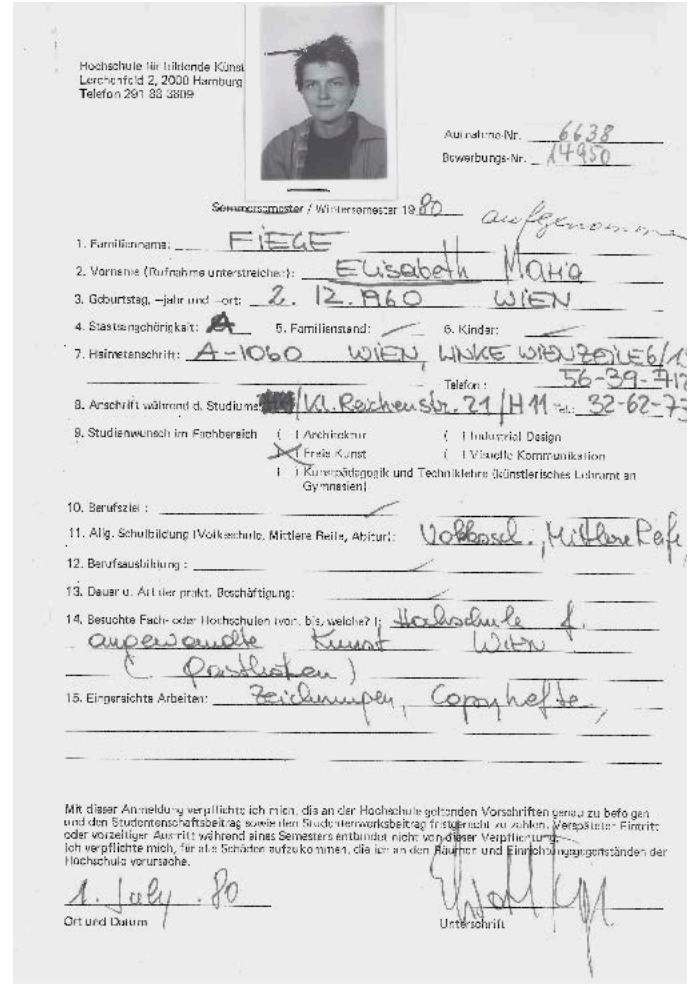 Hochschule für bildende Künst
Lerchenfeld 2, 2000 Hamburg
Telefon 291 88 3809
Aufnahme-Nr. 6638
Bewerbungs-Nr. 14950
Sommersemester / Wintersemester 19 80
aufgenomme
1. Familienname: FIEGE
2. Vorname (Rufname unterstreichen): Elisabeth Maria
3. Geburtstag, –jahr und –ort: 2. 12. 1960 WIEN
4. Staatsangehörigkeit: A 5. Familienstand: 6. Kinder:
7. Heimatanschrift: A-1060 WIEN, LINKE WIENZEILE 6/
Telefon: 56-39-
8. Anschrift während d. Studiums: /Kl. Reichenstr. 21/H 11 Tel.: 32-62-7
9. Studienwunsch im Fachbereich ( ) Architektur ( ) Industrial Design
(X) Freie Kunst ( ) Visuelle Kommunikation
( ) Kunstpädagogik und Techniklehre (künstlerisches Lehramt an
Gymnasien)
10. Berufsziel:
11. Allg. Schulbildung (Volksschule, Mittlere Reife, Abitur): Volkssch., Mittlere Reife,
12. Berufsausbildung:
13. Dauer u. Art der prakt. Beschäftigung:
14. Besuchte Fach- oder Hochschulen (von, bis, welche?): Hochschule f.
angewandte Kunst WIEN
15. Eingereichte Arbeiten: Zeichnungen, Copyhefte,
Mit dieser Anmeldung verpflichte ich mich, die an der Hochschule geltenden Vorschriften genau zu befolgen
und den Studentenschaftsbeitrag sowie den Studentenwerksbeitrag fristgerecht zu zahlen. Verspäteter Eintritt
oder vorzeitiger Austritt während eines Semesters entbindet nicht von dieser Verpflichtung.
Ich verpflichte mich, für alle Schäden aufzukommen, die ich an den Räumen und Einrichtungsgegenständen der
Hochschule verursache.
1. July . 80
Ort und Datum Unterschrift